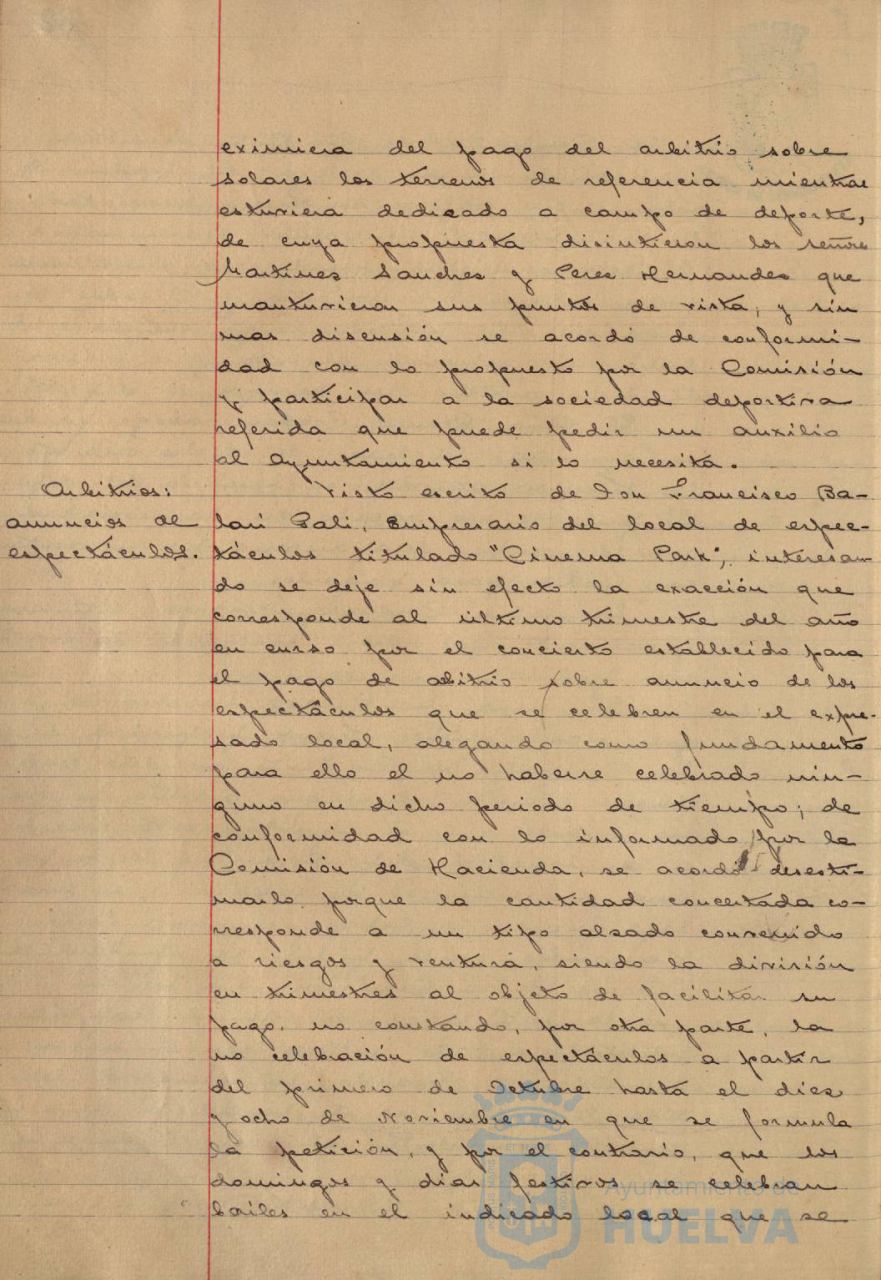 eximiera del pago del arbitrio sobre
solares los terrenos de referencia mientras
estuviera dedicado a campo de deporte,
de cuya propuesta disintieron los señores
Martinez Sanchez y Perez Hernandez que
mantuvieron sus puntos de vista, y sin
mas discusión se acordó de conformi-
dad con lo propuesto por la Comisión
y participar a la sociedad deportiva
referida que puede pedir un auxilio
al Ayuntamiento si lo necesita.
Arbitrios:
anuncios de
espectáculos.
Visto escrito de Don Francisco Ba-
lari Gali, Empresario del local de espec-
táculos titulado "Cinema Park", interesan-
do se deje sin efecto la exacción que
corresponde al último trimestre del año
en curso por el concierto establecido para
el pago de abitrio sobre anuncio de los
espectáculos que se celebren en el expre-
sado local, alegando como fundamento
para ello el no haberse celebrado nin-
guno en dicho periodo de tiempo; de
conformidad con lo informado por la
Comisión de Hacienda, se acordó desesti-
marlo porque la cantidad concertada co-
rresponde a un tipo alzado convenido
a riesgos y ventura, siendo la división
en trimestres al objeto de facilitar su
pago, no constando, por otra parte, la
no celebración de espectáculos a partir
del primero de Octubre hasta el diez
y ocho de Noviembre en que se formula
la petición, y por el contrario, que los
domingos y dias festivos se celebran
bailes en el indicado local que se
Ayuntamiento de
HUELVA